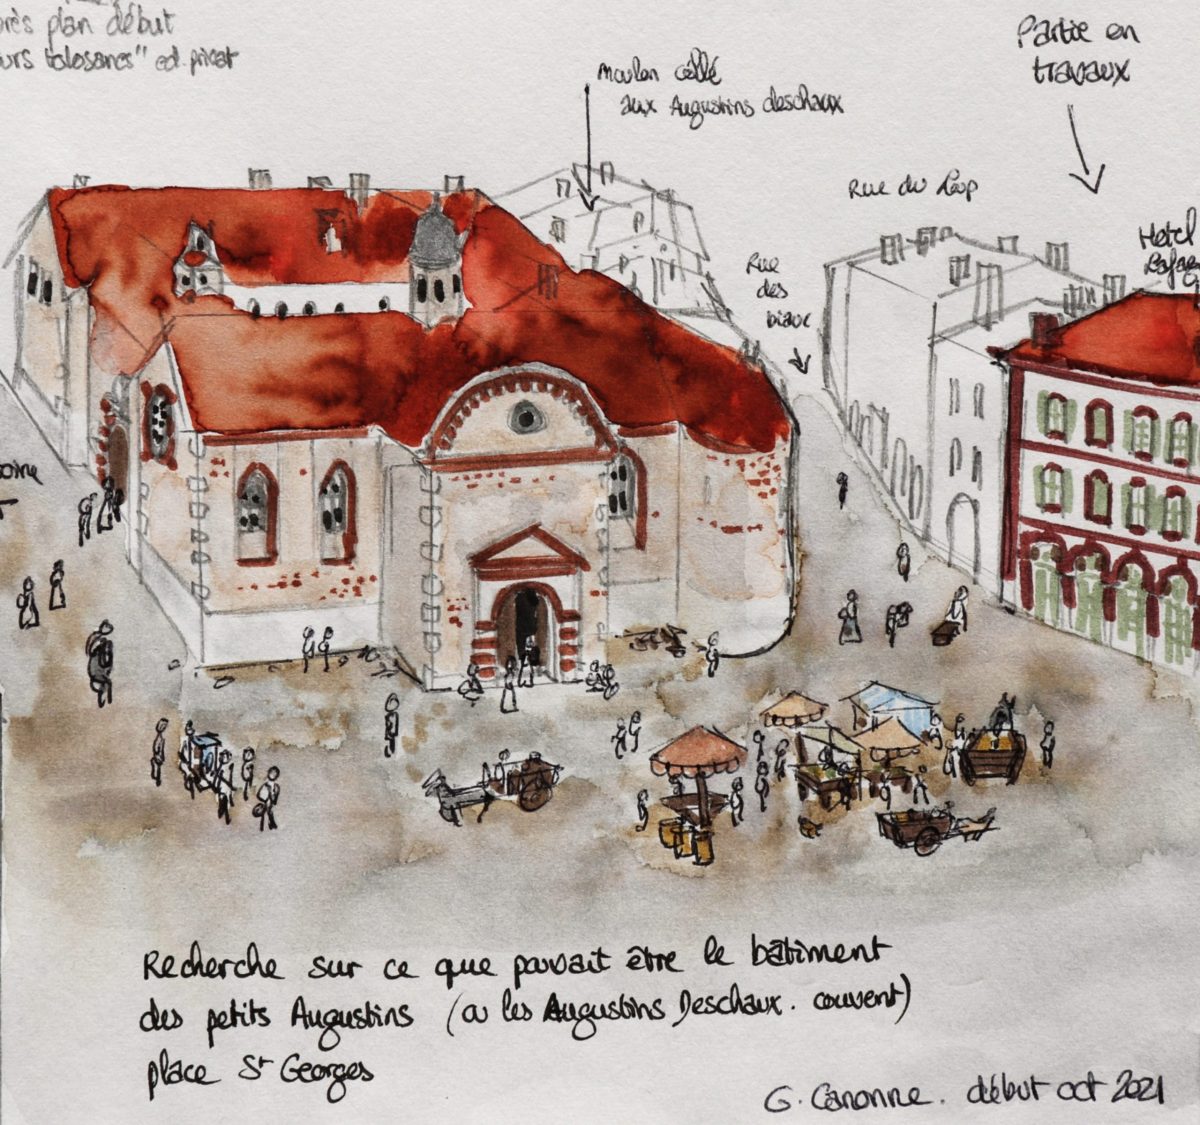 plan début
tolosanes" ed. privat
moulon collé
aux Augustins deschaux
Partie en
travaux
Rue du Loup
Hotel
Rue
des
Recherche sur ce que pouvait être le bâtiment
des petits Augustins (ou les Augustins Deschaux. couvent)
place St Georges
G. Canonne. début oct 2021